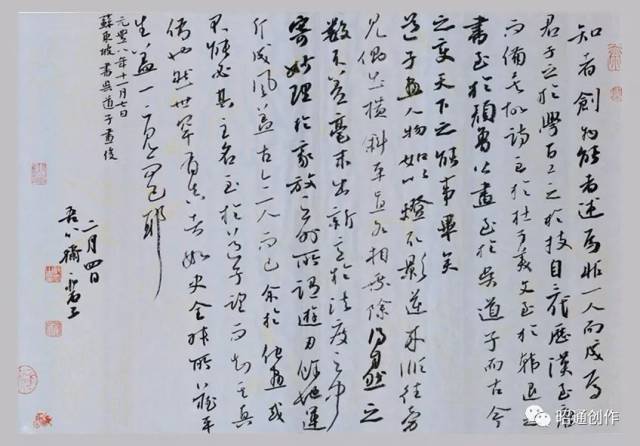 知者創物能者述焉非一人而成焉
君子之於學百工之於技自三代歷漢至唐
而備矣故詩至於杜子美文至於韓退之
書至於顏魯公畫至於吳道子而古今
之變天下之能事畢矣
道子畫人物如以燈取影逆來順往旁
見側出橫斜平直各相乘除得自然之
數不差毫末出新意於法度之中
寄妙理於豪放之外所謂遊刃餘地運
斤成風蓋古今一人而已余於他畫或
不能必其主名至於道子望而知其真
偽也然世罕有真者如史全叔所藏平
生蓋一二見而已耶
元豐八年十一月七日
蘇東坡書吳道子畫後
二月四日
昭通创作